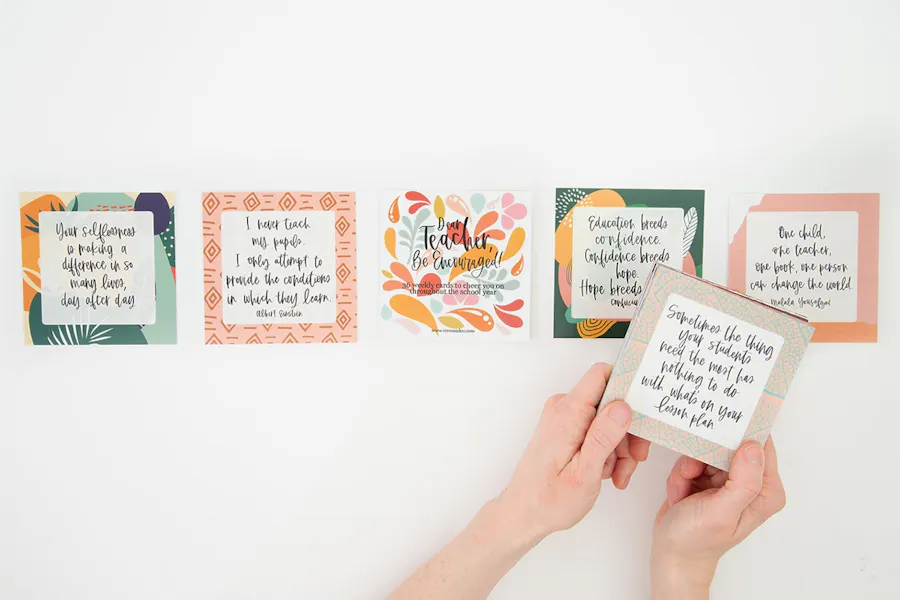 Your selflessness
is making a
difference in so
many lives,
day after day
I never teach
my pupils.
I only attempt to
provide the conditions
in which they learn.
Albert Einstein
Dear
Teacher,
Be Encouraged!
36 weekly cards to cheer you on
throughout the school year
Education breeds
confidence.
Confidence breeds
hope.
Hope breeds
Confucius
One child,
one teacher,
one book, one person
can change the world.
Malala Yousafzai
Sometimes the thing
your students
need the most has
nothing to do
with what's on your
lesson plan